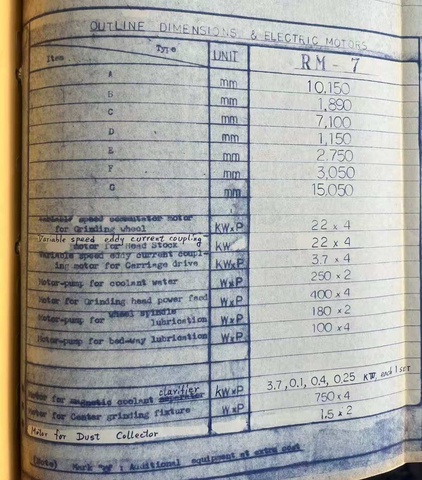 OUTLINE DIMENSIONS & ELECTRIC MOTORS
Item Type UNIT RM-7
A mm 10,150
B mm 1,890
C mm 7,100
D mm 1,150
E mm 2.750
F mm 3,050
G mm 15,050
Variable speed commutator motor
for Grinding wheel KW×P 22 × 4
Variable speed eddy current coupling
motor for Head Stock KW 22 × 4
Variable speed eddy current coupl-
ing motor for Carriage drive KW×P 3.7 × 4
Motor-pump for coolant water W×P 250 × 2
Motor for Grinding head power feed W×P 400 × 4
Motor-pump for wheel spindle
lubrication W×P 180 × 2
Motor-pump for bed-way lubrication W×P 100 × 4
3.7, 0.1, 0.4, 0.25 KW, each 1 SET
clarifier
Motor for magnetic coolant KW×P 750 × 4
Motor for Center grinding fixture W×P 1.5 × 2
Motor for Dust Collector
(Note) Mark : Additional equipment at extra cost